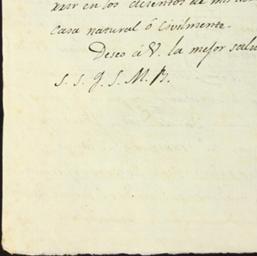 en los asientos de mi
casa natural ó civilmente.
Deseo á V. la mejor salu
S. S. Q. S. M. B.